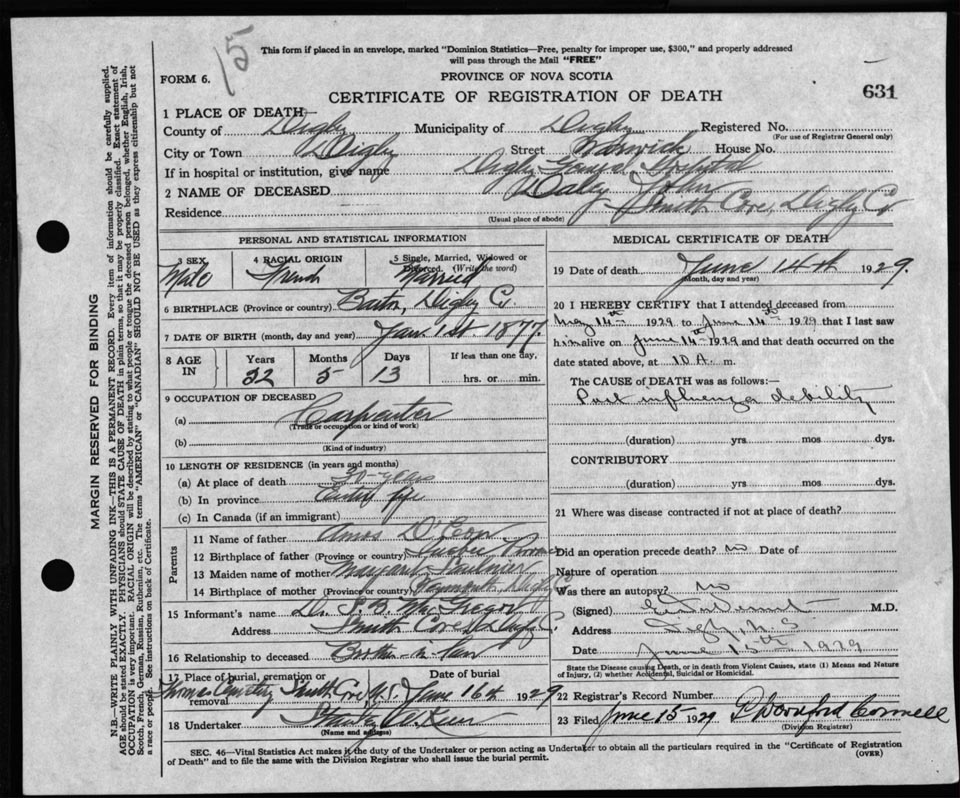 15
This form if placed in an envelope, marked "Dominion Statistics—Free, penalty for improper use, $300," and properly addressed
will pass through the Mail "FREE"
FORM 6.
PROVINCE OF NOVA SCOTIA
CERTIFICATE OF REGISTRATION OF DEATH
631
1 PLACE OF DEATH—
County of Digby Municipality of Digby Registered No.
(For use of Registrar General only)
City or Town Digby Street Warwick House No.
If in hospital or institution, give name Digby General Hospital
2 NAME OF DECEASED Daley, John
Residence Smith Cove, Digby Co
(Usual place of abode)
PERSONAL AND STATISTICAL INFORMATION
3 SEX 4 RACIAL ORIGIN 5 Single, Married, Widowed or
Divorced. (Write the word)
Male French Married
6 BIRTHPLACE (Province or country) Barton, Digby Co.
7 DATE OF BIRTH (month, day and year) Jan. 1st 1877.
8 AGE IN Years Months Days If less than one day,
52 5 13 hrs. or min.
9 OCCUPATION OF DECEASED
(a) Carpenter
(Trade or occupation or kind of work)
(b)
(Kind of industry)
10 LENGTH OF RESIDENCE (in years and months)
(a) At place of death 30 years
(b) In province Entire life
(c) In Canada (if an immigrant)
Parents
11 Name of father Amos
12 Birthplace of father (Province or country) Quebec
13 Maiden name of mother Margaret
14 Birthplace of mother (Province or country)
15 Informant's name Dr.
Address Smith Cove Digby Co.
16 Relationship to deceased Brother-in-law
17 Place of burial, cremation or removal Date of burial
Thomas Cemetery Smith Cove N.S. June 16th 1929
18 Undertaker
(Name and address)
MEDICAL CERTIFICATE OF DEATH
19 Date of death June 14th 1929.
(Month, day and year)
20 I HEREBY CERTIFY that I attended deceased from
May 14th 1929 to June 14th 1929 that I last saw
him alive on June 14th 1929 and that death occurred on the
date stated above, at 10 A. m.
The CAUSE of DEATH was as follows:—
Post influenza debility
(duration) yrs mos dys.
CONTRIBUTORY
(duration) yrs. mos dys.
21 Where was disease contracted if not at place of death?
Did an operation precede death? no Date of
Nature of operation
Was there an autopsy? No
(Signed) M.D.
Address Digby, N.S
Date June 15th 1929
State the Disease causing Death, or in death from Violent Causes, state (1) Means and Nature
of Injury, (2) whether Accidental, Suicidal or Homicidal.
22 Registrar's Record Number
23 Filed June 15 1929
(Division Registrar)
SEC. 46—Vital Statistics Act makes it the duty of the Undertaker or person acting as Undertaker to obtain all the particulars required in the "Certificate of Registration
of Death" and to file the same with the Division Registrar who shall issue the burial permit.
(OVER)
MARGIN RESERVED FOR BINDING
N.B.—WRITE PLAINLY WITH UNFADING INK—THIS IS A PERMANENT RECORD. Every item of information should be carefully supplied.
AGE should be stated EXACTLY. PHYSICIANS should STATE CAUSE OF DEATH in plain terms, so that it may be properly classified. Exact statement of
OCCUPATION is very important. RACIAL ORIGIN will be described by stating to what people or tongue the deceased person belonged, whether English, Irish,
Scotch, French, German, Russian, Ruthenian, etc. The terms "AMERICAN" or "CANADIAN" SHOULD NOT BE USED as they express citizenship but not
a race or people. See instructions on back of Certificate.